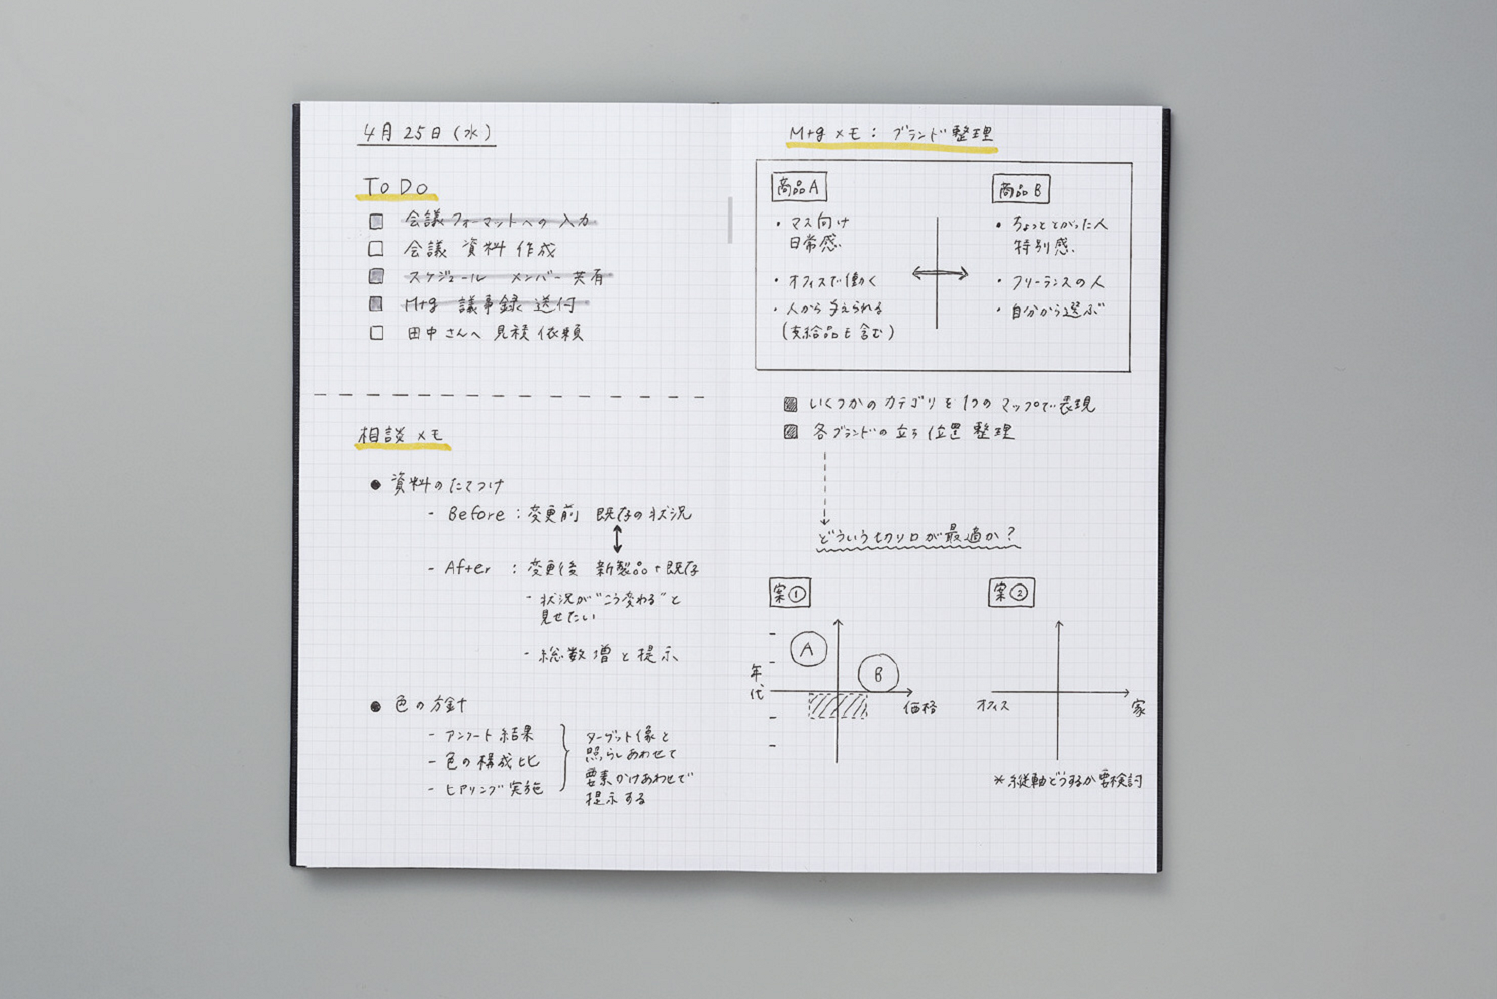 4月25日(水)
To Do
会議フォーマットへの入力
会議資料作成
スケジュール メンバー共有
Mtg 議事録送付
田中さんへ見積依頼
相談メモ
● 資料のたてつけ
- Before：変更前 既存の状況
- After：変更後 新製品+既存
- 状況が"こう変わる"と
見せたい
- 総数増と提示
● 色の方針
- アンケート結果
- 色の構成比
- ヒアリング実施
ターゲット像と
照らしあわせて
要素かけあわせで
提示する
Mtgメモ：ブランド整理
商品A
・マス向け
日常感
・オフィスで働く
・人から与えられる
(支給品も含む)
商品B
・ちょっととがった人
特別感
・フリーランスの人
・自分から選ぶ
いくつかのカテゴリを1つのマップで表現
各ブランドの立ち位置整理
どういう切り口が最適か?
案①
A
B
年代
価格
案②
オフィス
家
*縦軸どうするか要検討